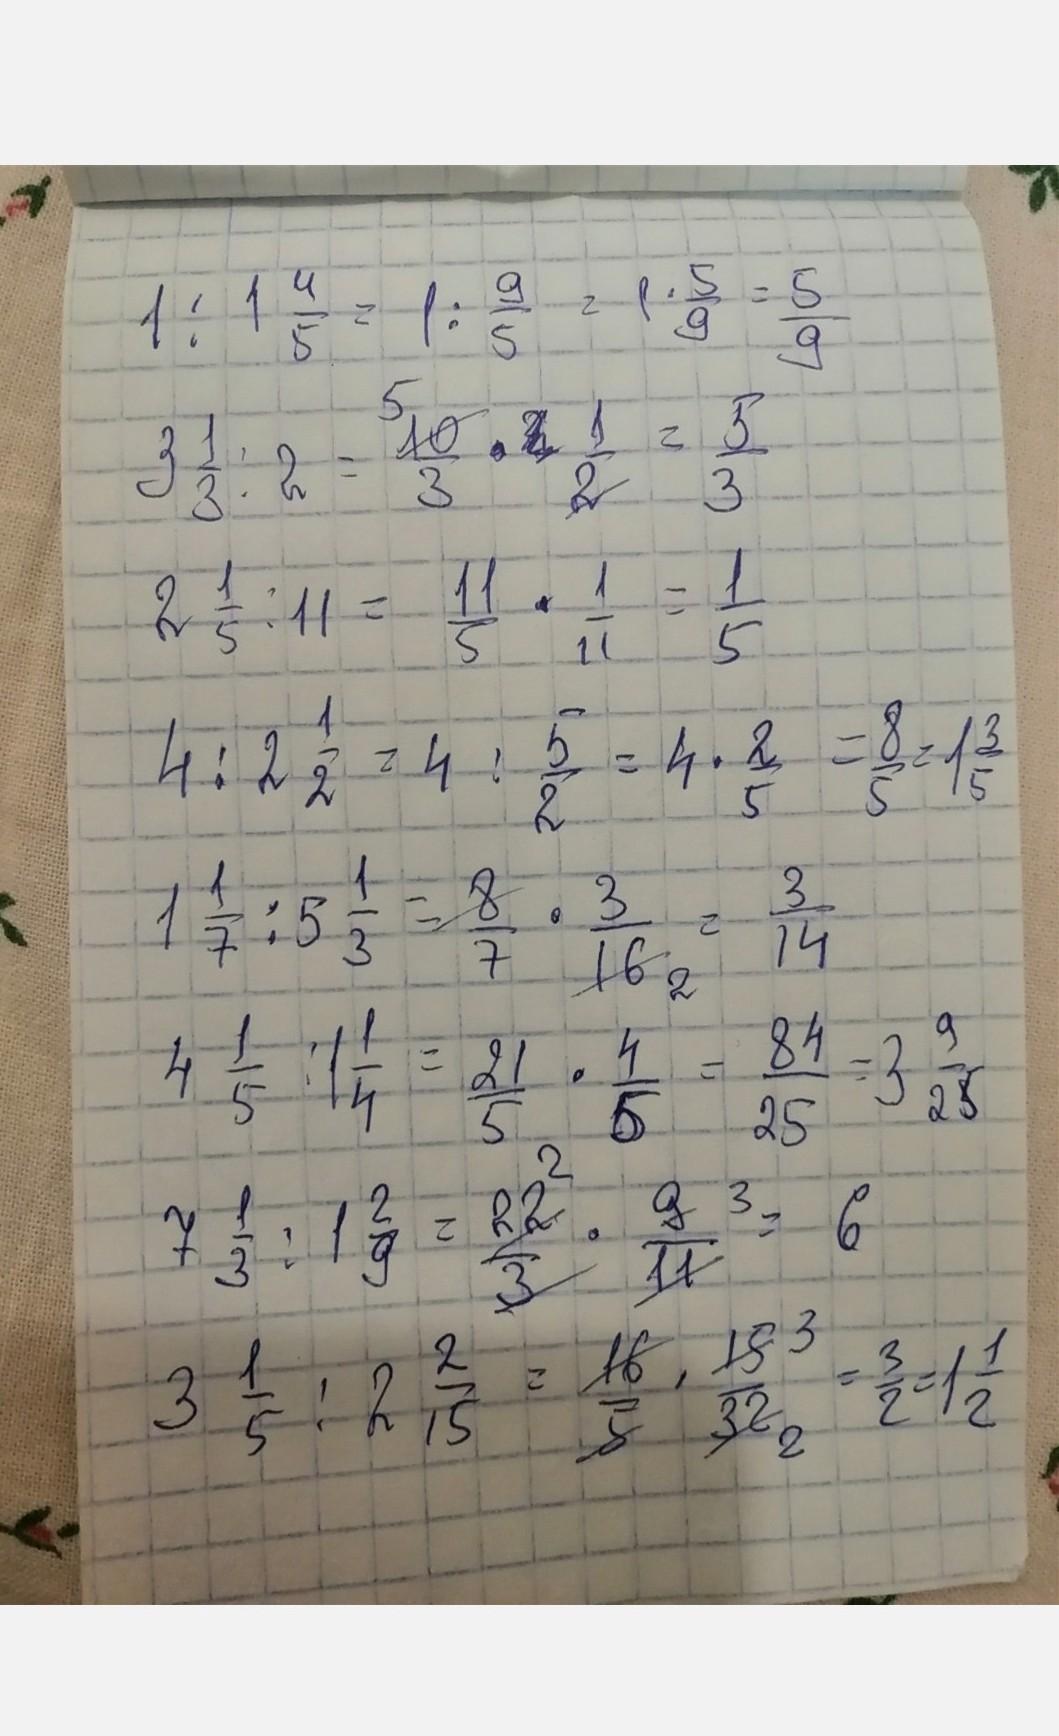 1 : 1 4/5 = 1 : 9/5 = 1 · 5/9 = 5/9
3 1/3 : 2 = 5 10/3 · 1/2 = 5/3
2 1/5 : 11 = 11/5 · 1/11 = 1/5
4 : 2 1/2 = 4 : 5/2 = 4 · 2/5 = 8/5 = 1 3/5
1 1/7 : 5 1/3 = 8/7 · 3/16 2 = 3/14
4 1/5 : 1 1/4 = 21/5 · 4/5 = 84/25 = 3 9/25
7 1/3 : 1 2/9 = 22 2/3 · 9 3/11 = 6
3 1/5 : 2 2/15 = 16/5 · 15 3/32 2 = 3/2 = 1 1/2